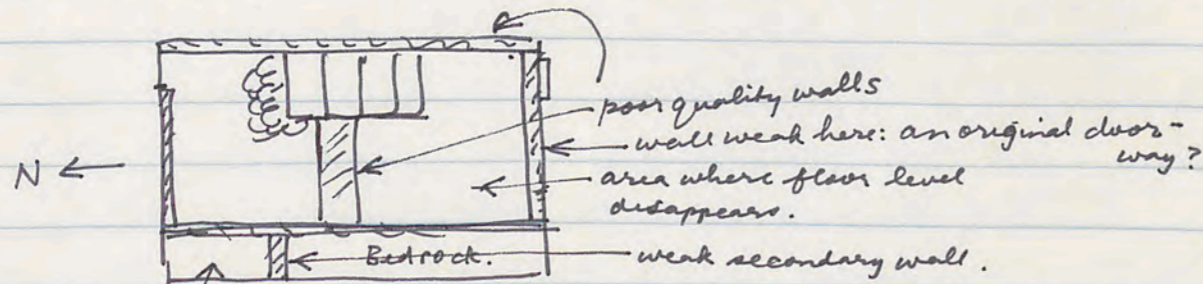 poor quality walls
wall weak here: an original door-
way?
N
area where floor level
disappears.
Bedrock.
weak secondary wall.